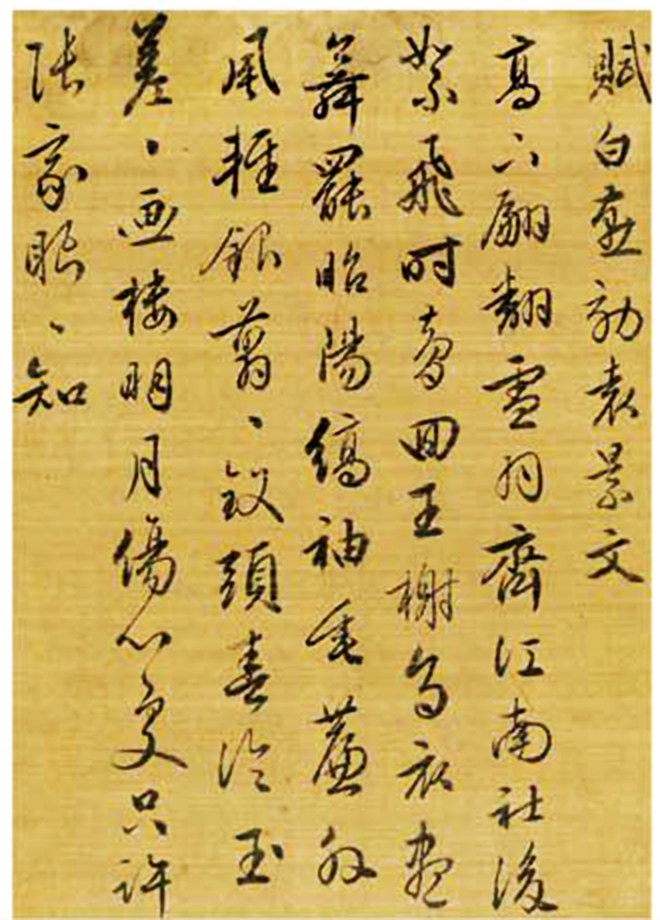 賦白燕効袁景文
高下翩翻雪羽齊江南社後
絮飛時夢回王榭烏衣盡
舞罷昭陽縞袖垂簾外
風輕銀翦、釵頭春冷玉
差、画樓明月傷心處只許
張家盼、知